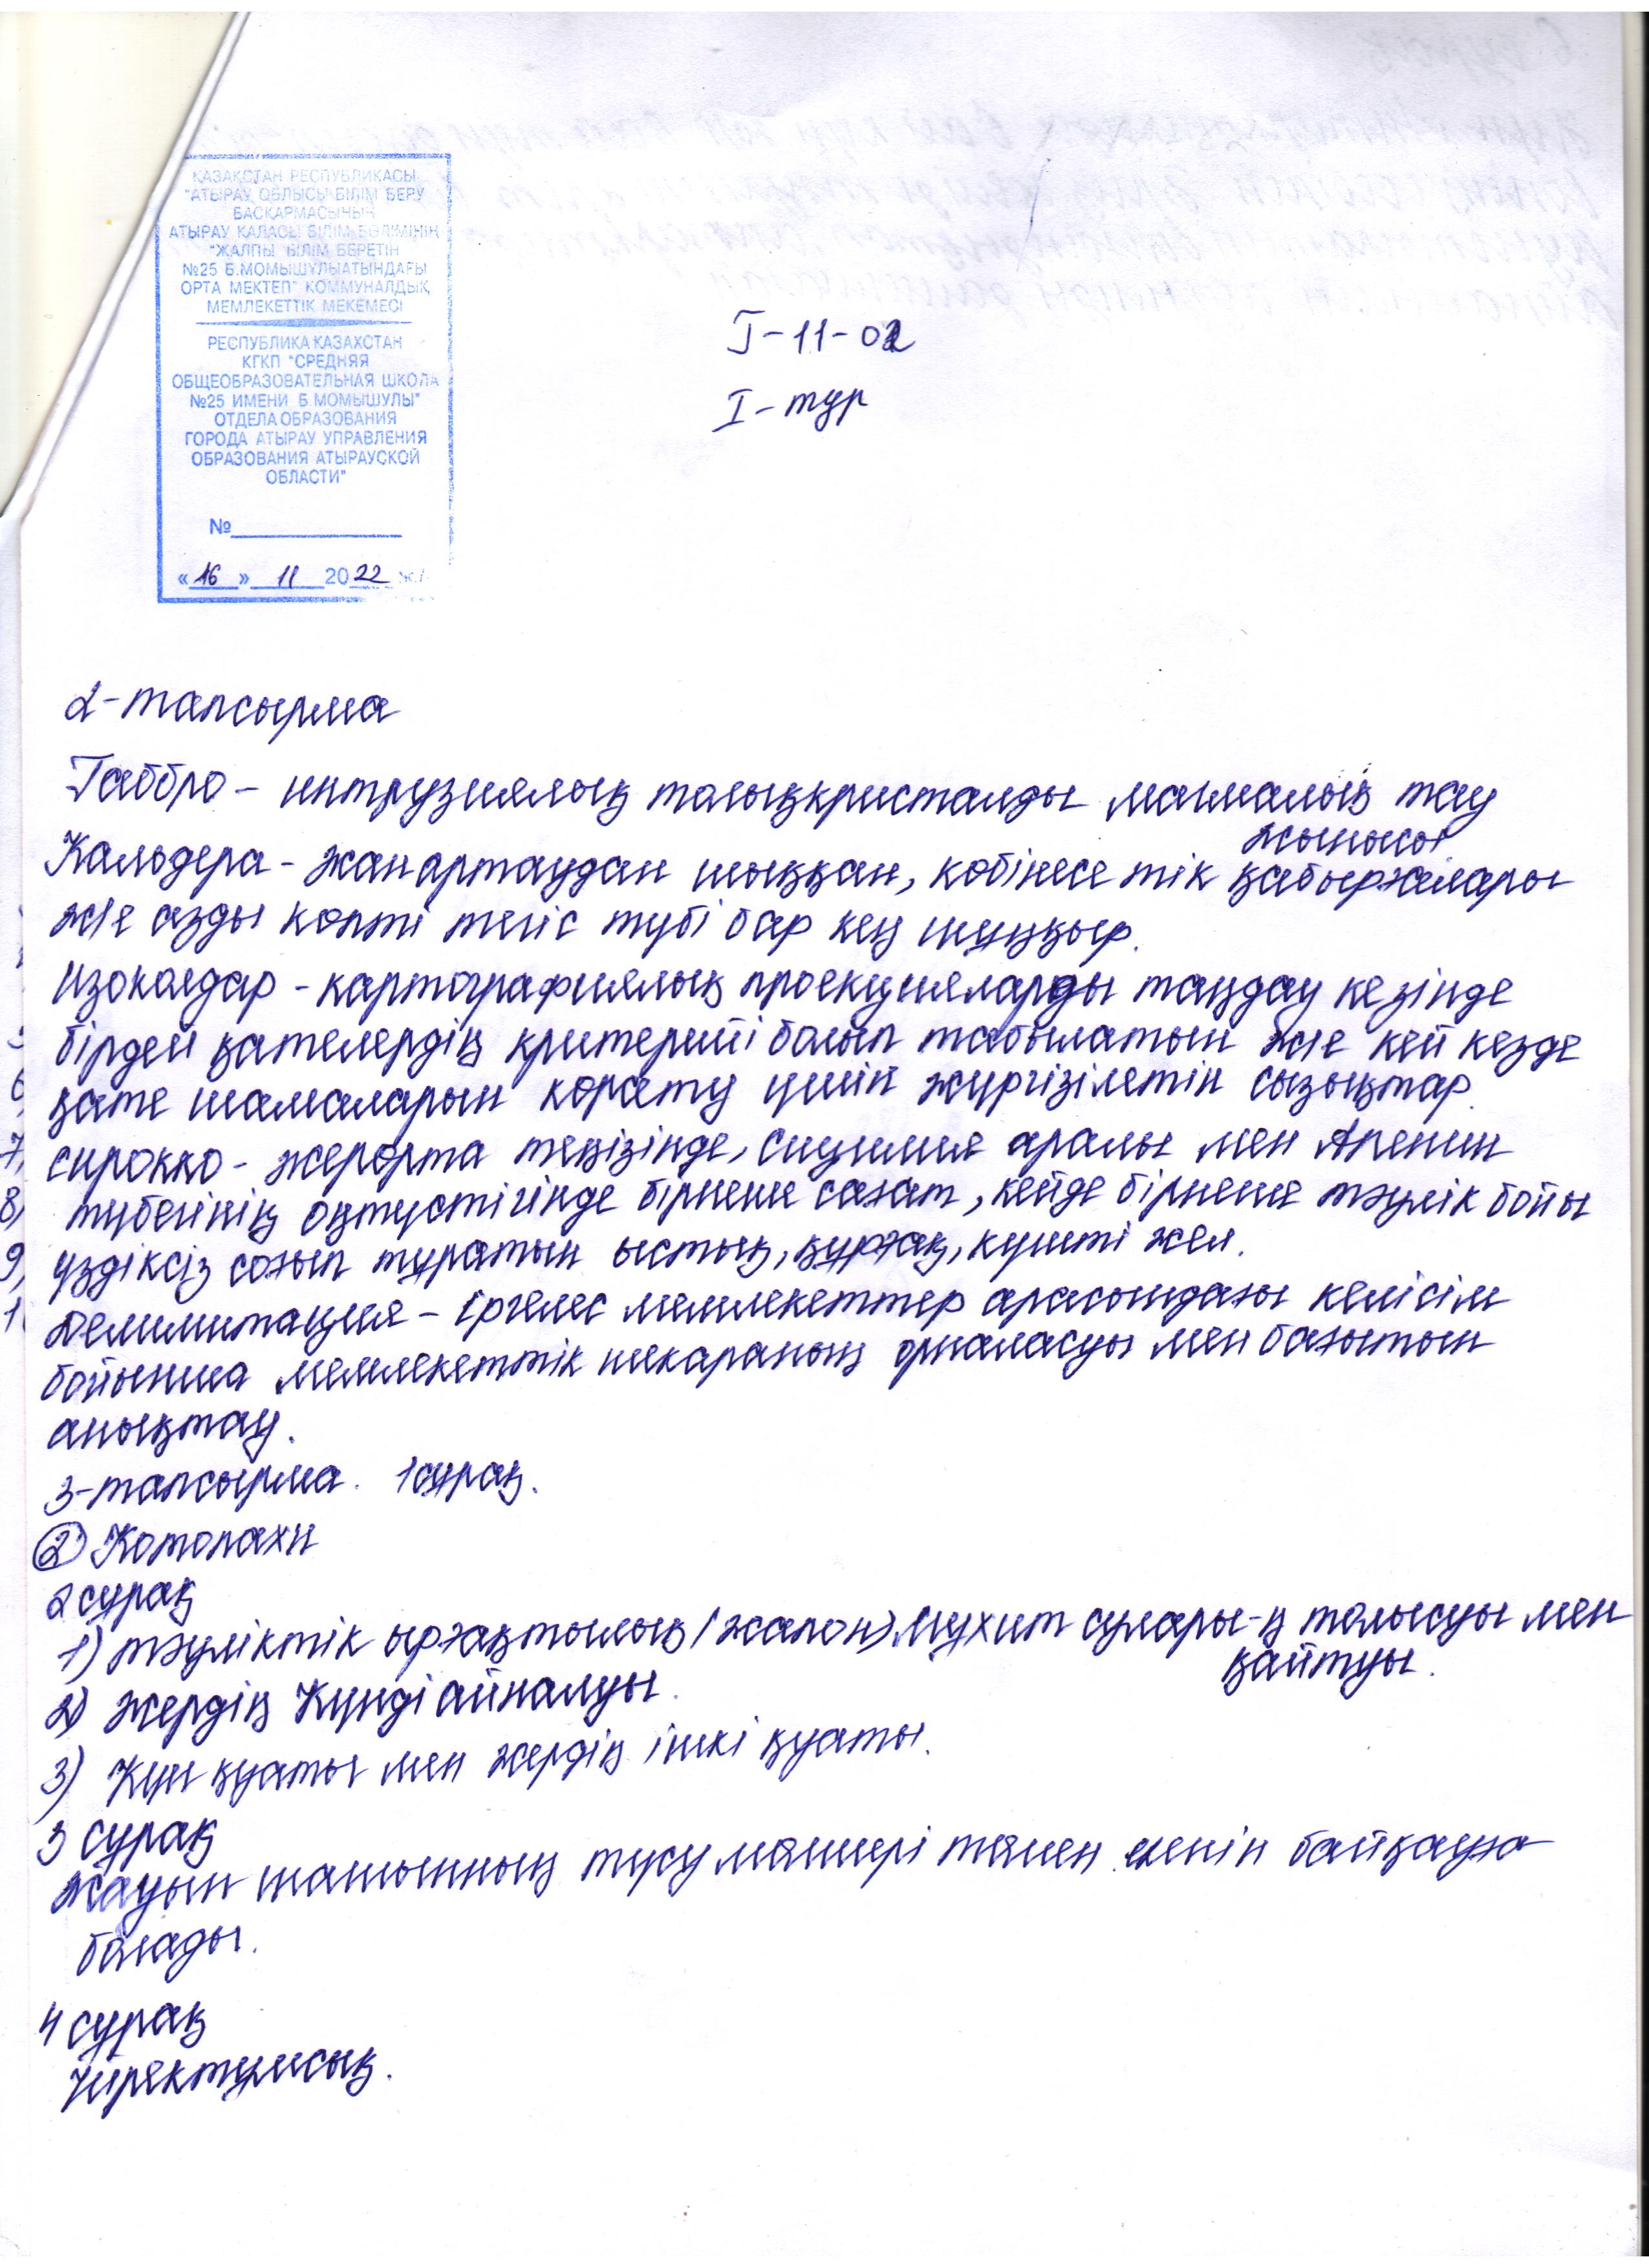 ҚАЗАҚСТАН РЕСПУБЛИКАСЫ
"АТЫРАУ ОБЛЫСЫ БІЛІМ БЕРУ
БАСҚАРМАСЫНЫҢ
АТЫРАУ ҚАЛАСЫ БІЛІМ БӨЛІМІНІҢ
"ЖАЛПЫ БІЛІМ БЕРЕТІН
№25 Б.МОМЫШҰЛЫ АТЫНДАҒЫ
ОРТА МЕКТЕП" КОММУНАЛДЫҚ
МЕМЛЕКЕТТІК МЕКЕМЕСІ
РЕСПУБЛИКА КАЗАХСТАН
КГКП "СРЕДНЯЯ
ОБЩЕОБРАЗОВАТЕЛЬНАЯ ШКОЛА
№25 ИМЕНИ Б МОМЫШУЛЫ"
ОТДЕЛА ОБРАЗОВАНИЯ
ГОРОДА АТЫРАУ УПРАВЛЕНИЯ
ОБРАЗОВАНИЯ АТЫРАУСКОЙ
ОБЛАСТИ"
№
«16» 11 2022 ж.
Г-11-02
I-тур
2-тапсырма
Габбро - интрузиялық толыққристалды магмалық тау
жынысы
Кальдера - жанартаудан шыққан, көбінесе тік қабырғалары
ж/е азды көпті тегіс түбі бар кең шұңқыр.
Изоколдар - картографиялық проекцияларды таңдау кезінде
бірдей қателердің критерийі болып табылатын ж/е кей кезде
қате шамаларын көрсету үшін жүргізілетін сызықтар.
Сирокко - жерорта теңізінде, Сицилия аралы мен Апенин
түбегінің оңтүстігінде бірнеше сағат, кейде бірнеше тәулік бойы
үздіксіз соғып тұратын ыстық, құрғақ, күшті жел.
Делимитация - іргелес мемлекеттер арасындағы келісім
бойынша мемлекеттік шекараның орналасуы мен бағытын
анықтау.
3-тапсырма. 1сұрақ.
2) Котопахи
2сұрақ
1) тәуліктік ырғақтылық (жалон) Мұхит сулары-ң толысуы мен
қайтуы.
2) Жердің Күнді айналуы.
3) Күн қуаты мен жердің ішкі қуаты.
3 сұрақ
Жауын шашынның түсу мөлшері төмен екенін байқауға
болады.
4 сұрақ
Үйректұмсық.
7,
8,
9,